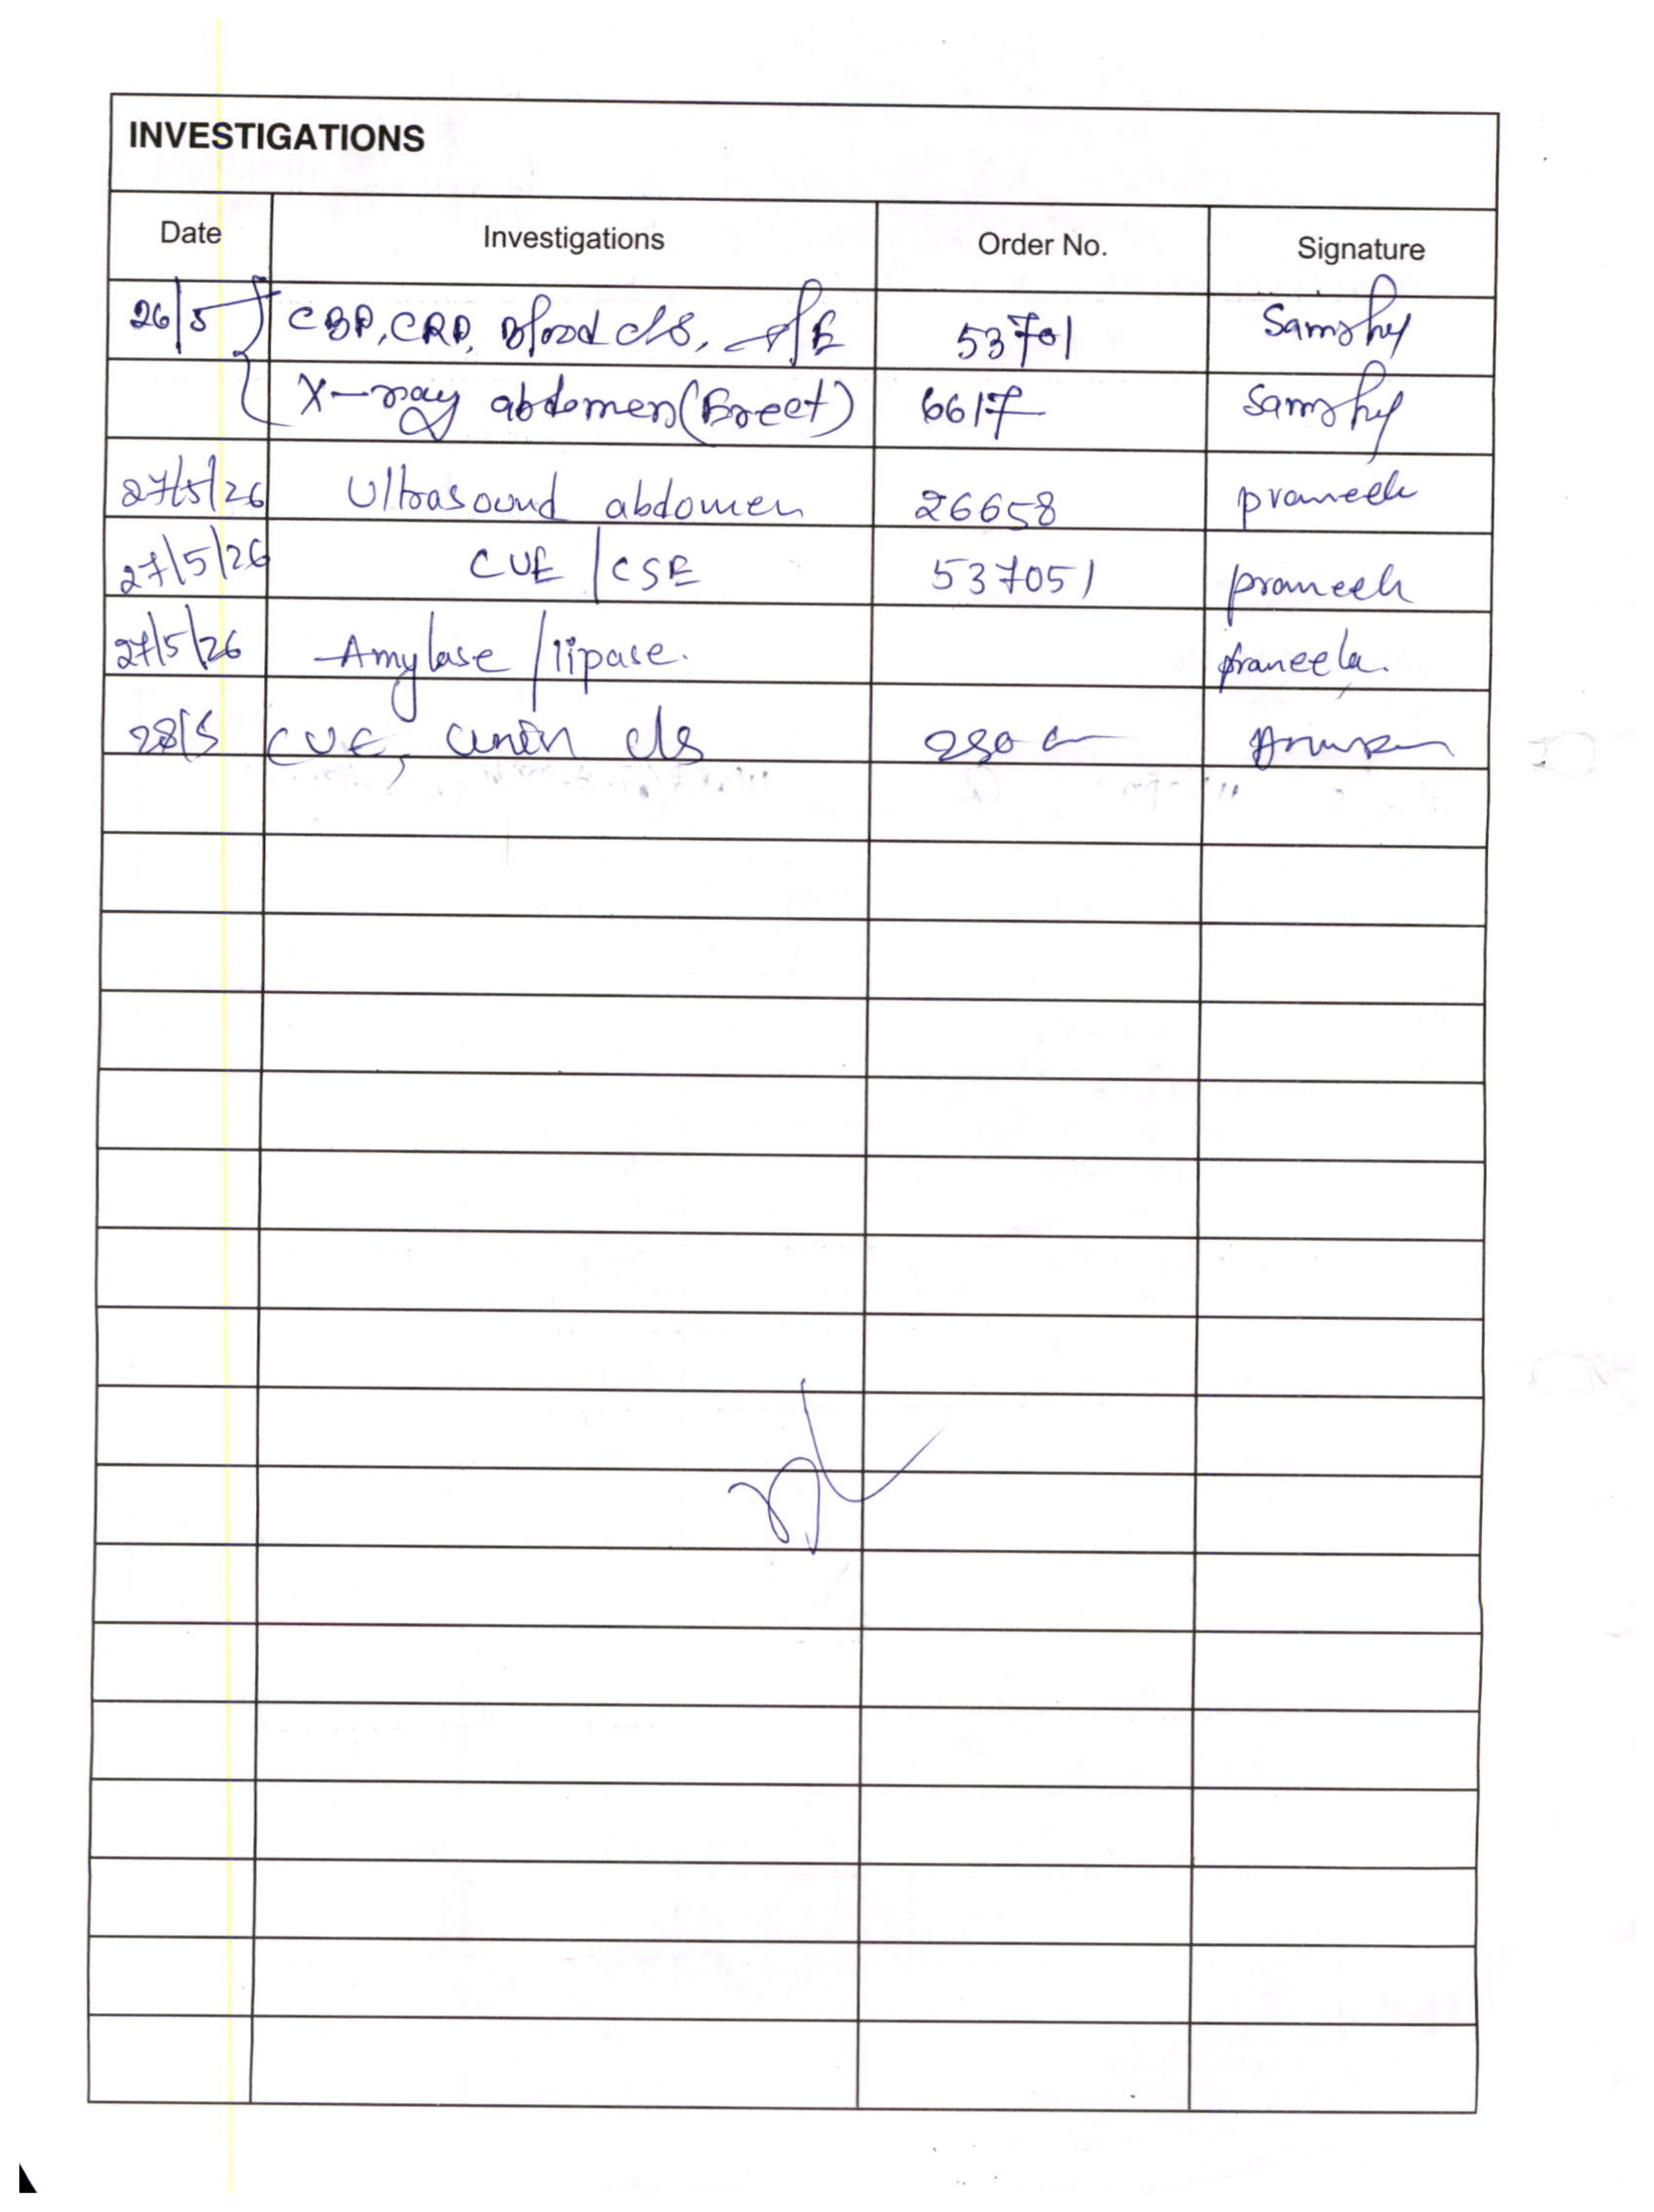 INVESTIGATIONS
Date Investigations Order No. Signature
26/5 CBP, CRP, Blood c/s, 53701
X-ray abdomen (Erect) 6617
27/5/26 Ultrasound abdomen 26658 praneeth
27/5/26 CUE / CSE 537051 praneeth
27/5/26 Amylase / lipase. praneeta.
28/5 CUE, c/s